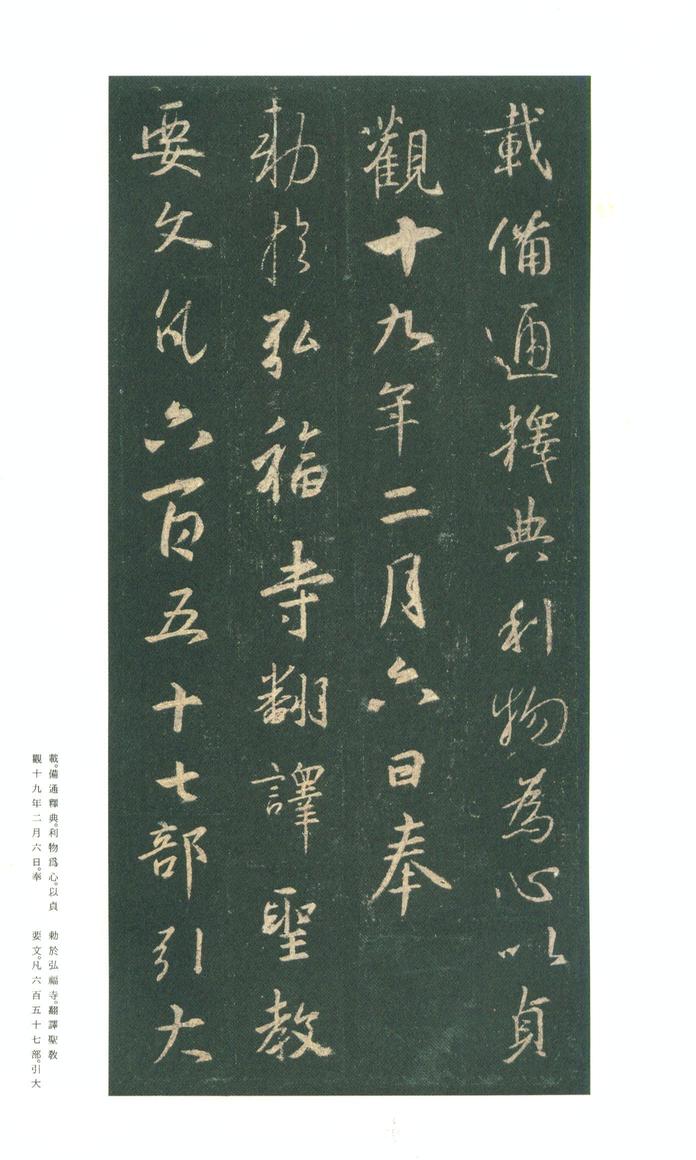 載備通釋典利物為心以貞
觀十九年二月六日奉
勅於弘福寺翻譯聖教
要文凡六百五十七部引大
載。備通釋典。利物爲心。以貞
觀十九年二月六日。奉
勅於弘福寺。翻譯聖敎
要文。凡六百五十七部。引大